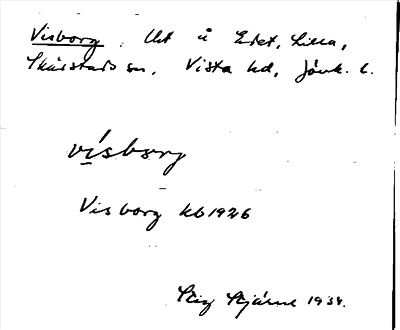 Visborg. Lht å Edet, Lilla,
Skärstads sn, Vista hd, Jönk. l.
vísborg
Visborg kb 1926
Stig Stjärne 1934.